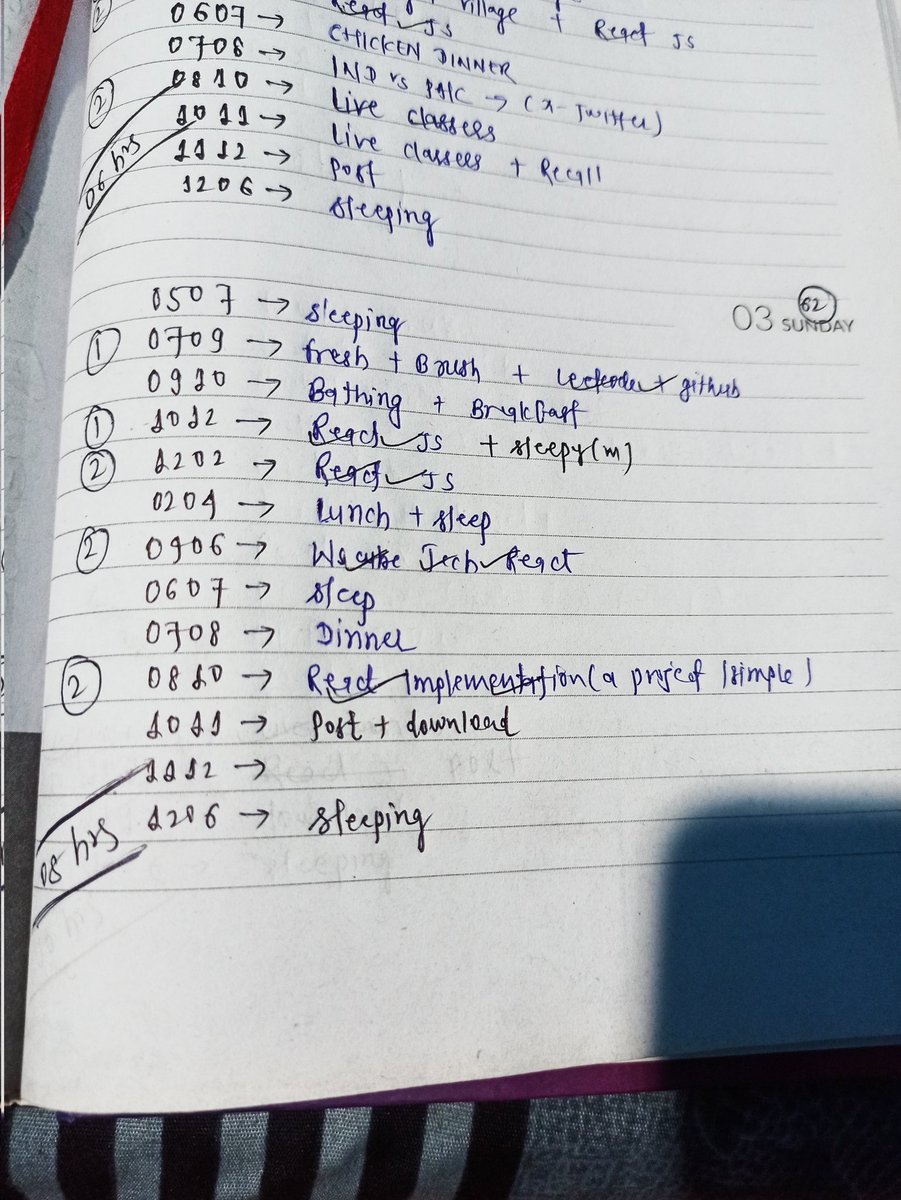 ② 0607 → React JS village + React JS
0708 → CHICKEN DINNER
② 0810 → IND vs PAK → (X-Twitter)
1011 → Live classees
06 hrs 1112 → Live classees + Recall
1206 → Post
sleeping
03 SUNDAY 62
0507 → sleeping
① 0709 → fresh + Brush + Leetcode + github
0910 → Bathing + Breakfast
① 1012 → React JS + sleepy(m)
② 1202 → React JS
0204 → Lunch + sleep
② 0406 → Tech React
0607 → sleep
0708 → Dinner
② 0810 → React Implementation (a project / simple)
1011 → Post + download
1112 →
08 hrs 1206 → sleeping